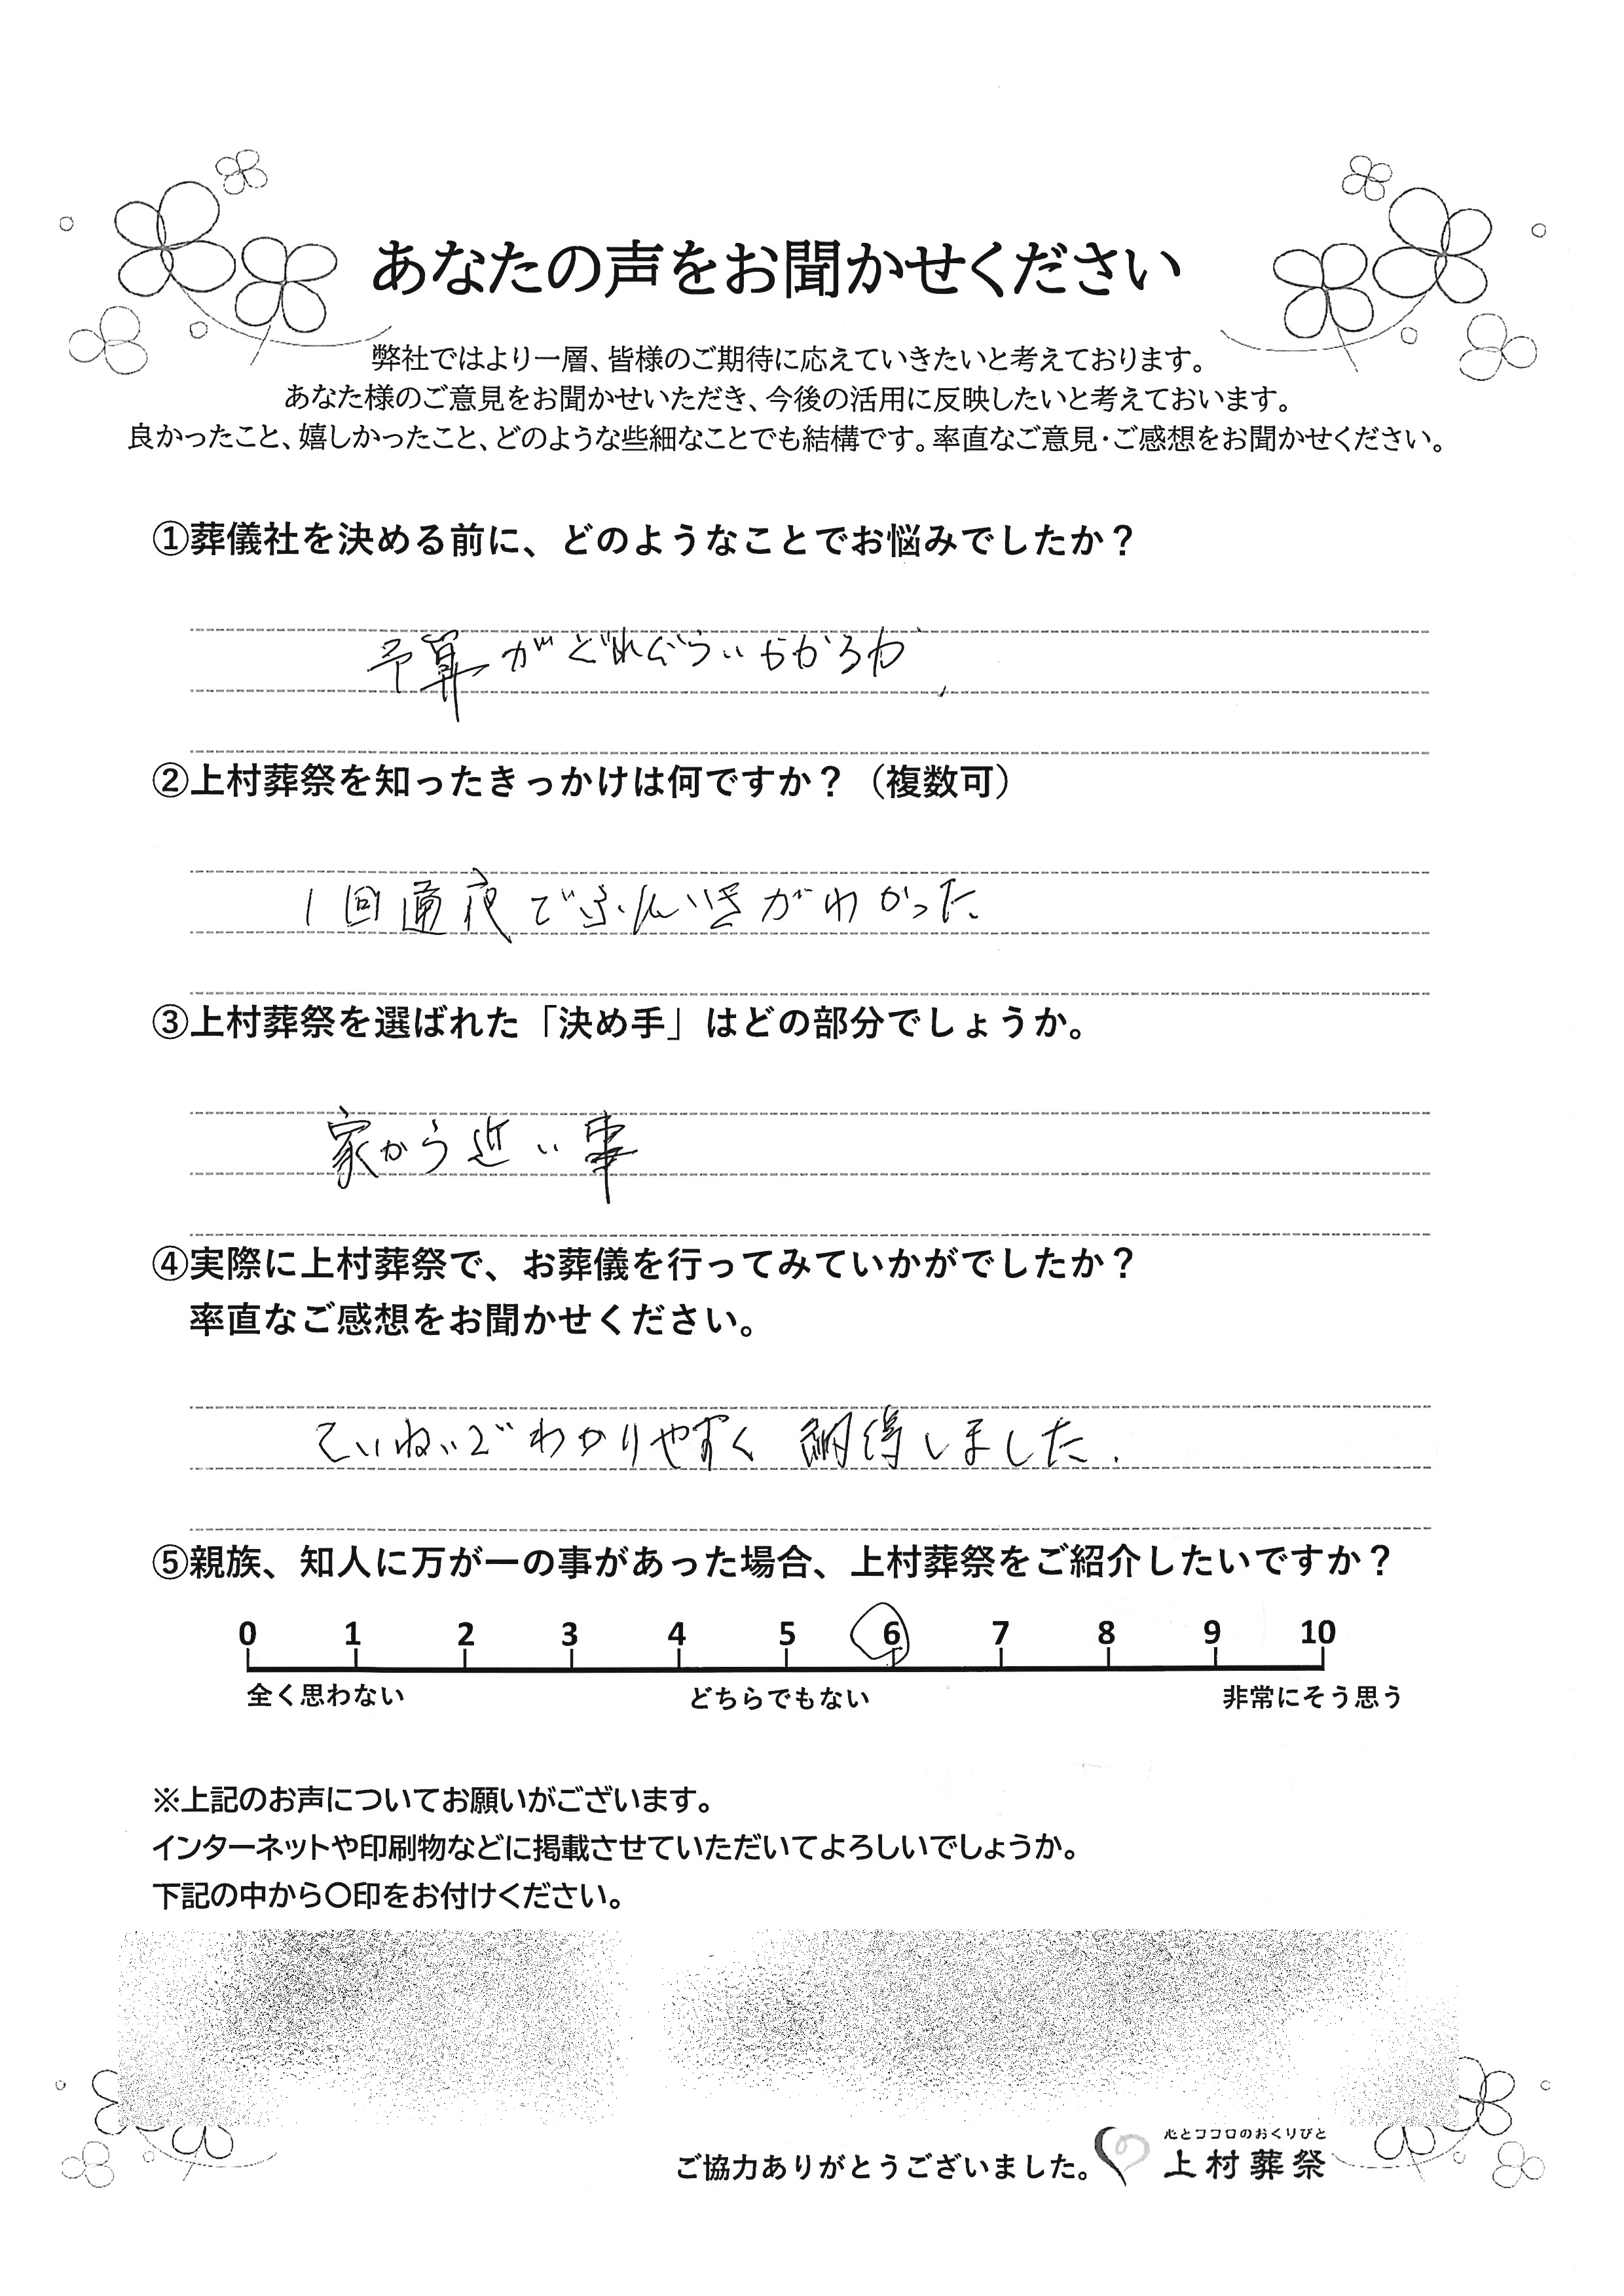 あなたの声をお聞かせください
弊社ではより一層、皆様のご期待に応えていきたいと考えております。
あなた様のご意見をお聞かせいただき、今後の活用に反映したいと考えておいます。
良かったこと、嬉しかったこと、どのような些細なことでも結構です。率直なご意見・ご感想をお聞かせください。
①葬儀社を決める前に、どのようなことでお悩みでしたか？
予算がどれぐらいかかるか、
②上村葬祭を知ったきっかけは何ですか？（複数可）
1回通夜でふんいきがわかった
③上村葬祭を選ばれた「決め手」はどの部分でしょうか。
家から近い事
④実際に上村葬祭で、お葬儀を行ってみていかがでしたか？
率直なご感想をお聞かせください。
ていねいでわかりやすく 納得しました.
⑤親族、知人に万が一の事があった場合、上村葬祭をご紹介したいですか？
0 1 2 3 4 5 6 7 8 9 10
全く思わない どちらでもない 非常にそう思う
※上記のお声についてお願いがございます。
インターネットや印刷物などに掲載させていただいてよろしいでしょうか。
下記の中から〇印をお付けください。
心とココロのおくりびと
ご協力ありがとうございました。 上村葬祭